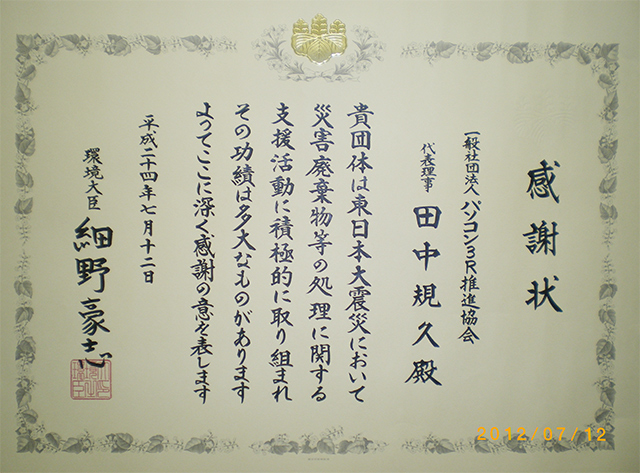 感謝状
一般社団法人パソコン3R推進協会
代表理事 田中規久殿
貴団体は東日本大震災において
災害廃棄物等の処理に関する
支援活動に積極的に取り組まれ
その功績は多大なものがあります
よってここに深く感謝の意を表します
平成二十四年七月十二日
環境大臣 細野豪志
2012/07/12